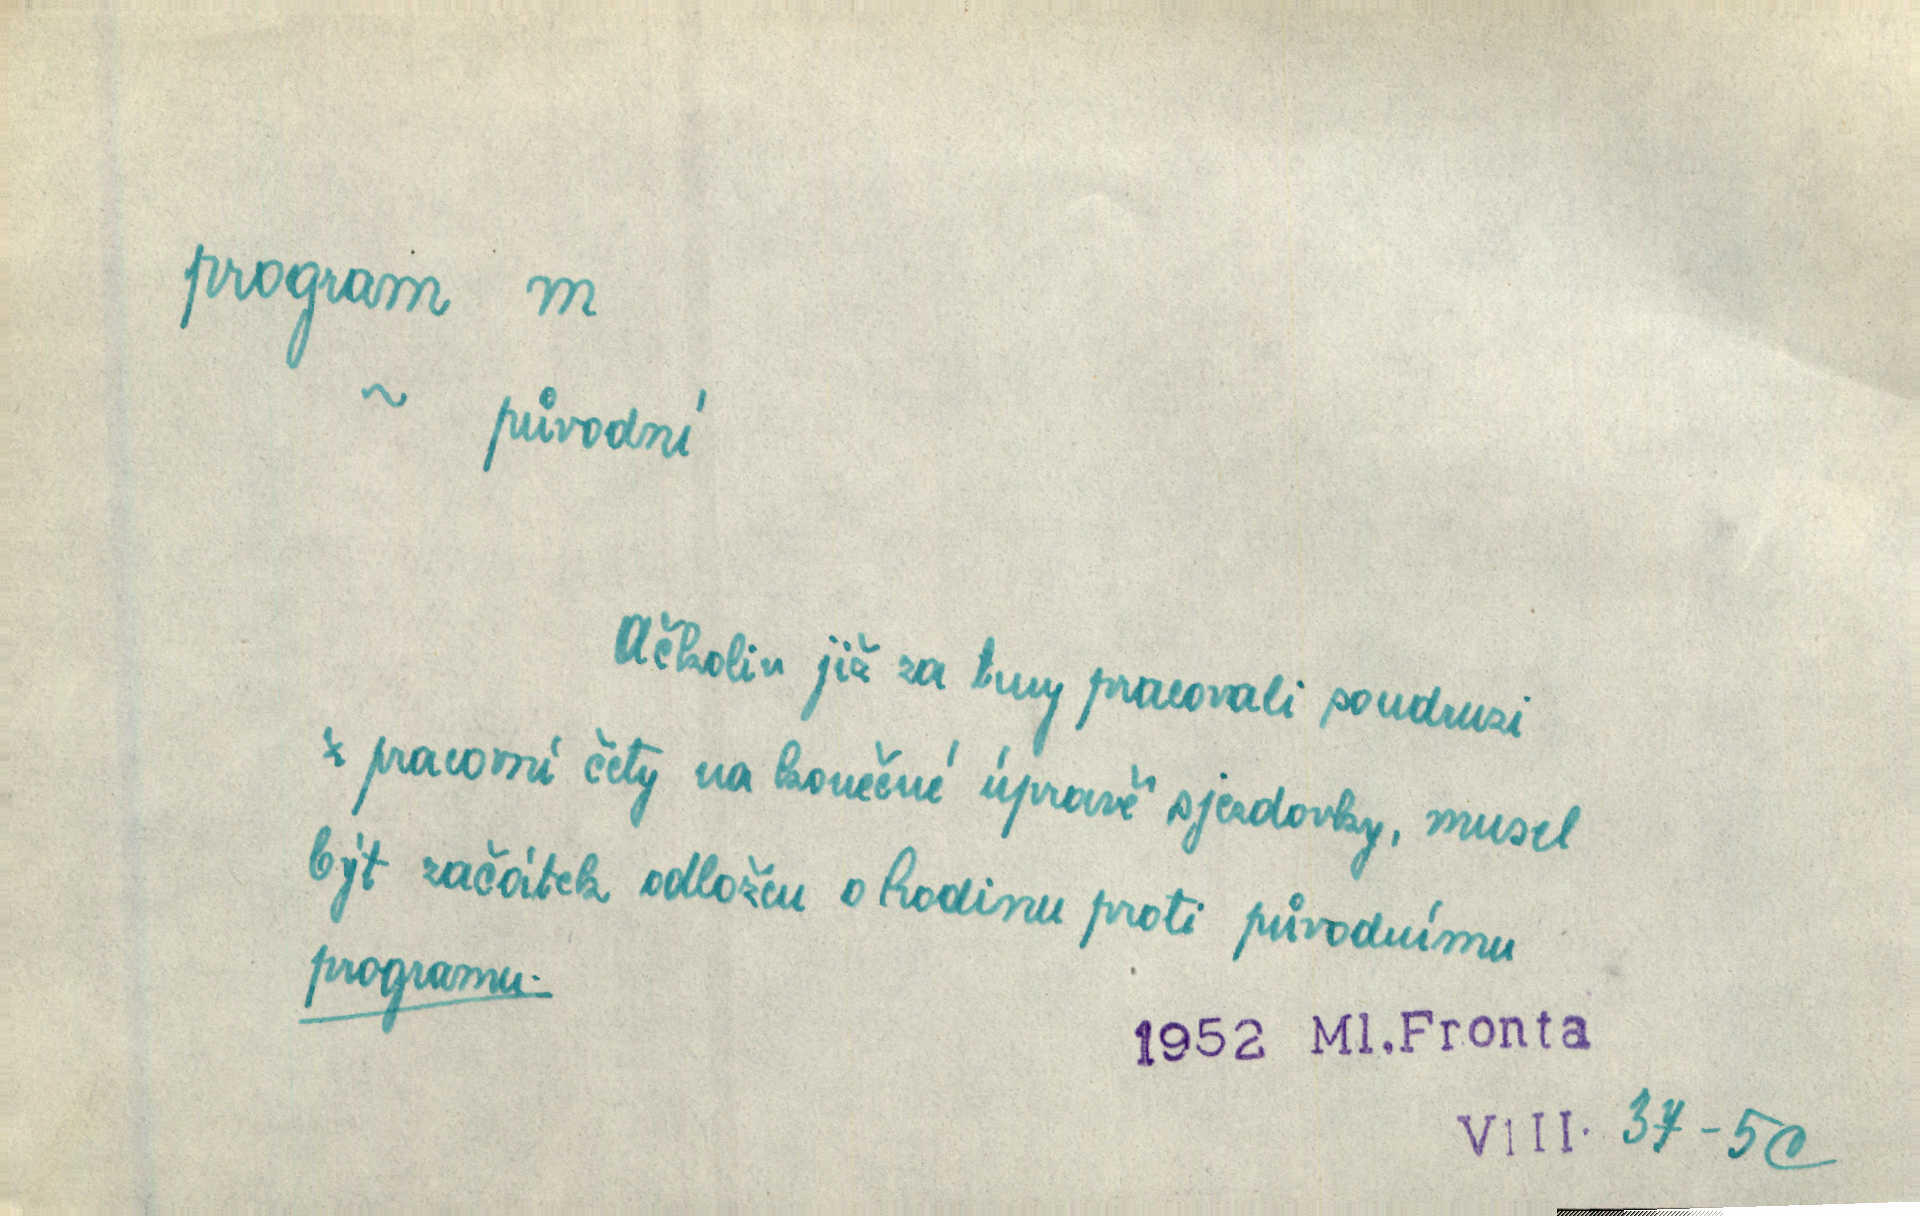 program m
~ původní
Ačkolin již za tmy pracovali soudruzi
z pracovní čety na konečné úpravě sjezdovky, musel
být začátek odložen o hodinu proti původnímu
programu.
1952 Ml.Fronta
VIII. 37-5c